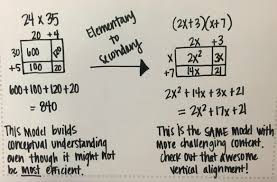 24 x 35
20 + 4
30 600 120
+5 100 20
600 + 100 + 120 + 20
= 840
This Model builds
conceptual understanding
even though it might not
be most efficient.
Elementary
to
Secondary
(2x+3)(x+7)
2x +3
x 2x² 3x
+7 14x 21
2x² + 14x + 3x + 21
= 2x² + 17x + 21
This is the SAME model with
more challenging content.
check out that awesome
vertical alignment!